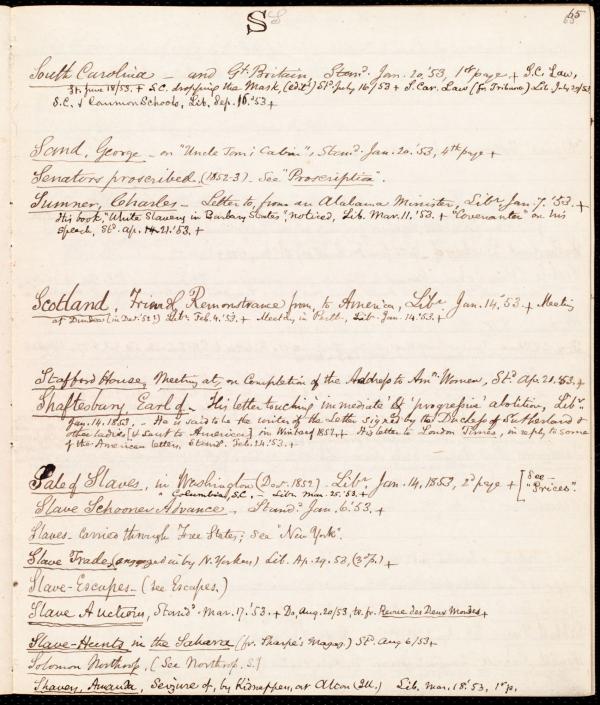 S
65
South Carolina – and Gt. Britain, Stand. Jan. 20, '53, 1st page + S.C. Law,
St. June 18/53. + S.C. dropping the Mask, (edit.) Std July 16/53 + S. Car. Law (fr. Tribune) Lib July 29/53
S.C. & Common Schools, Lib. Sep. 16. '53 +
Sand, George – on "Uncle Tom's Cabin", Stand. Jan. 20. '53, 4th page +
Senators proscribed, (1852-3) – See "Proscription".
Sumner, Charles – Letter to, from an Alabama Minister, Libr. Jan. 7. '53. +
His book, "White Slavery in Barbary States", noticed, Lib. Mar. 11. '53. + "Covenanter" on his
Speech, Std. Ap. 21. '53. +
Scotland, Friendly Remonstrance from, to America, Libr. Jan. 14. '53. + Meeting
at Dundee (in Dec. '52?) Libr. Feb. 4. '53. + Meeting in Perth, Lib. Jan. 14. '53. +
Stafford House, Meeting at, on Completion of the Address to Amn. Women, Std. Ap. 21. '53. +
Shaftesbury, Earl of – His letter touching 'immediate' & 'progressive' abolition, Libr.
Jan. 14. 1853. – He is said to be the writer of the Letter signed by the Duchess of Sutherland &
other ladies [& sent to America] in Winter of 1852. + His letter to London Times, in reply to some
of the American letters, Stand. Feb. 24. '53. +
Sale of Slaves, in Washington (Dec. 1852) – Libr. Jan. 14, 1853, 2d page + [See – "Prices".
" Columbia, S.C. – Libr. Mar. 25. '53. +
Slave Schooner Advance – Stand. Jan. 6. '53. +
Slaves – carried through Free States; See "New York".
Slave Trade, (engaged in by N. Yorkers) Lib. Ap. 29. 53, (3d p.) +
Slave-Escapes – (see Escapes.)
Slave Auctions, Stand. Mar. 17. '53. + Do, Aug. 20/53, tr. fr. Revue des Deux Mondes +
Slave-Hunts in the Sahara (fr. Sharpe's Magaz.) Std. Aug 6/53 +
Solomon Northrop, (See Northrop. S.)
Shavey, Amanda, Seizure of, by Kidnappers, at Alton (Ill.) Lib. Mar. 18. '53, 1st p.